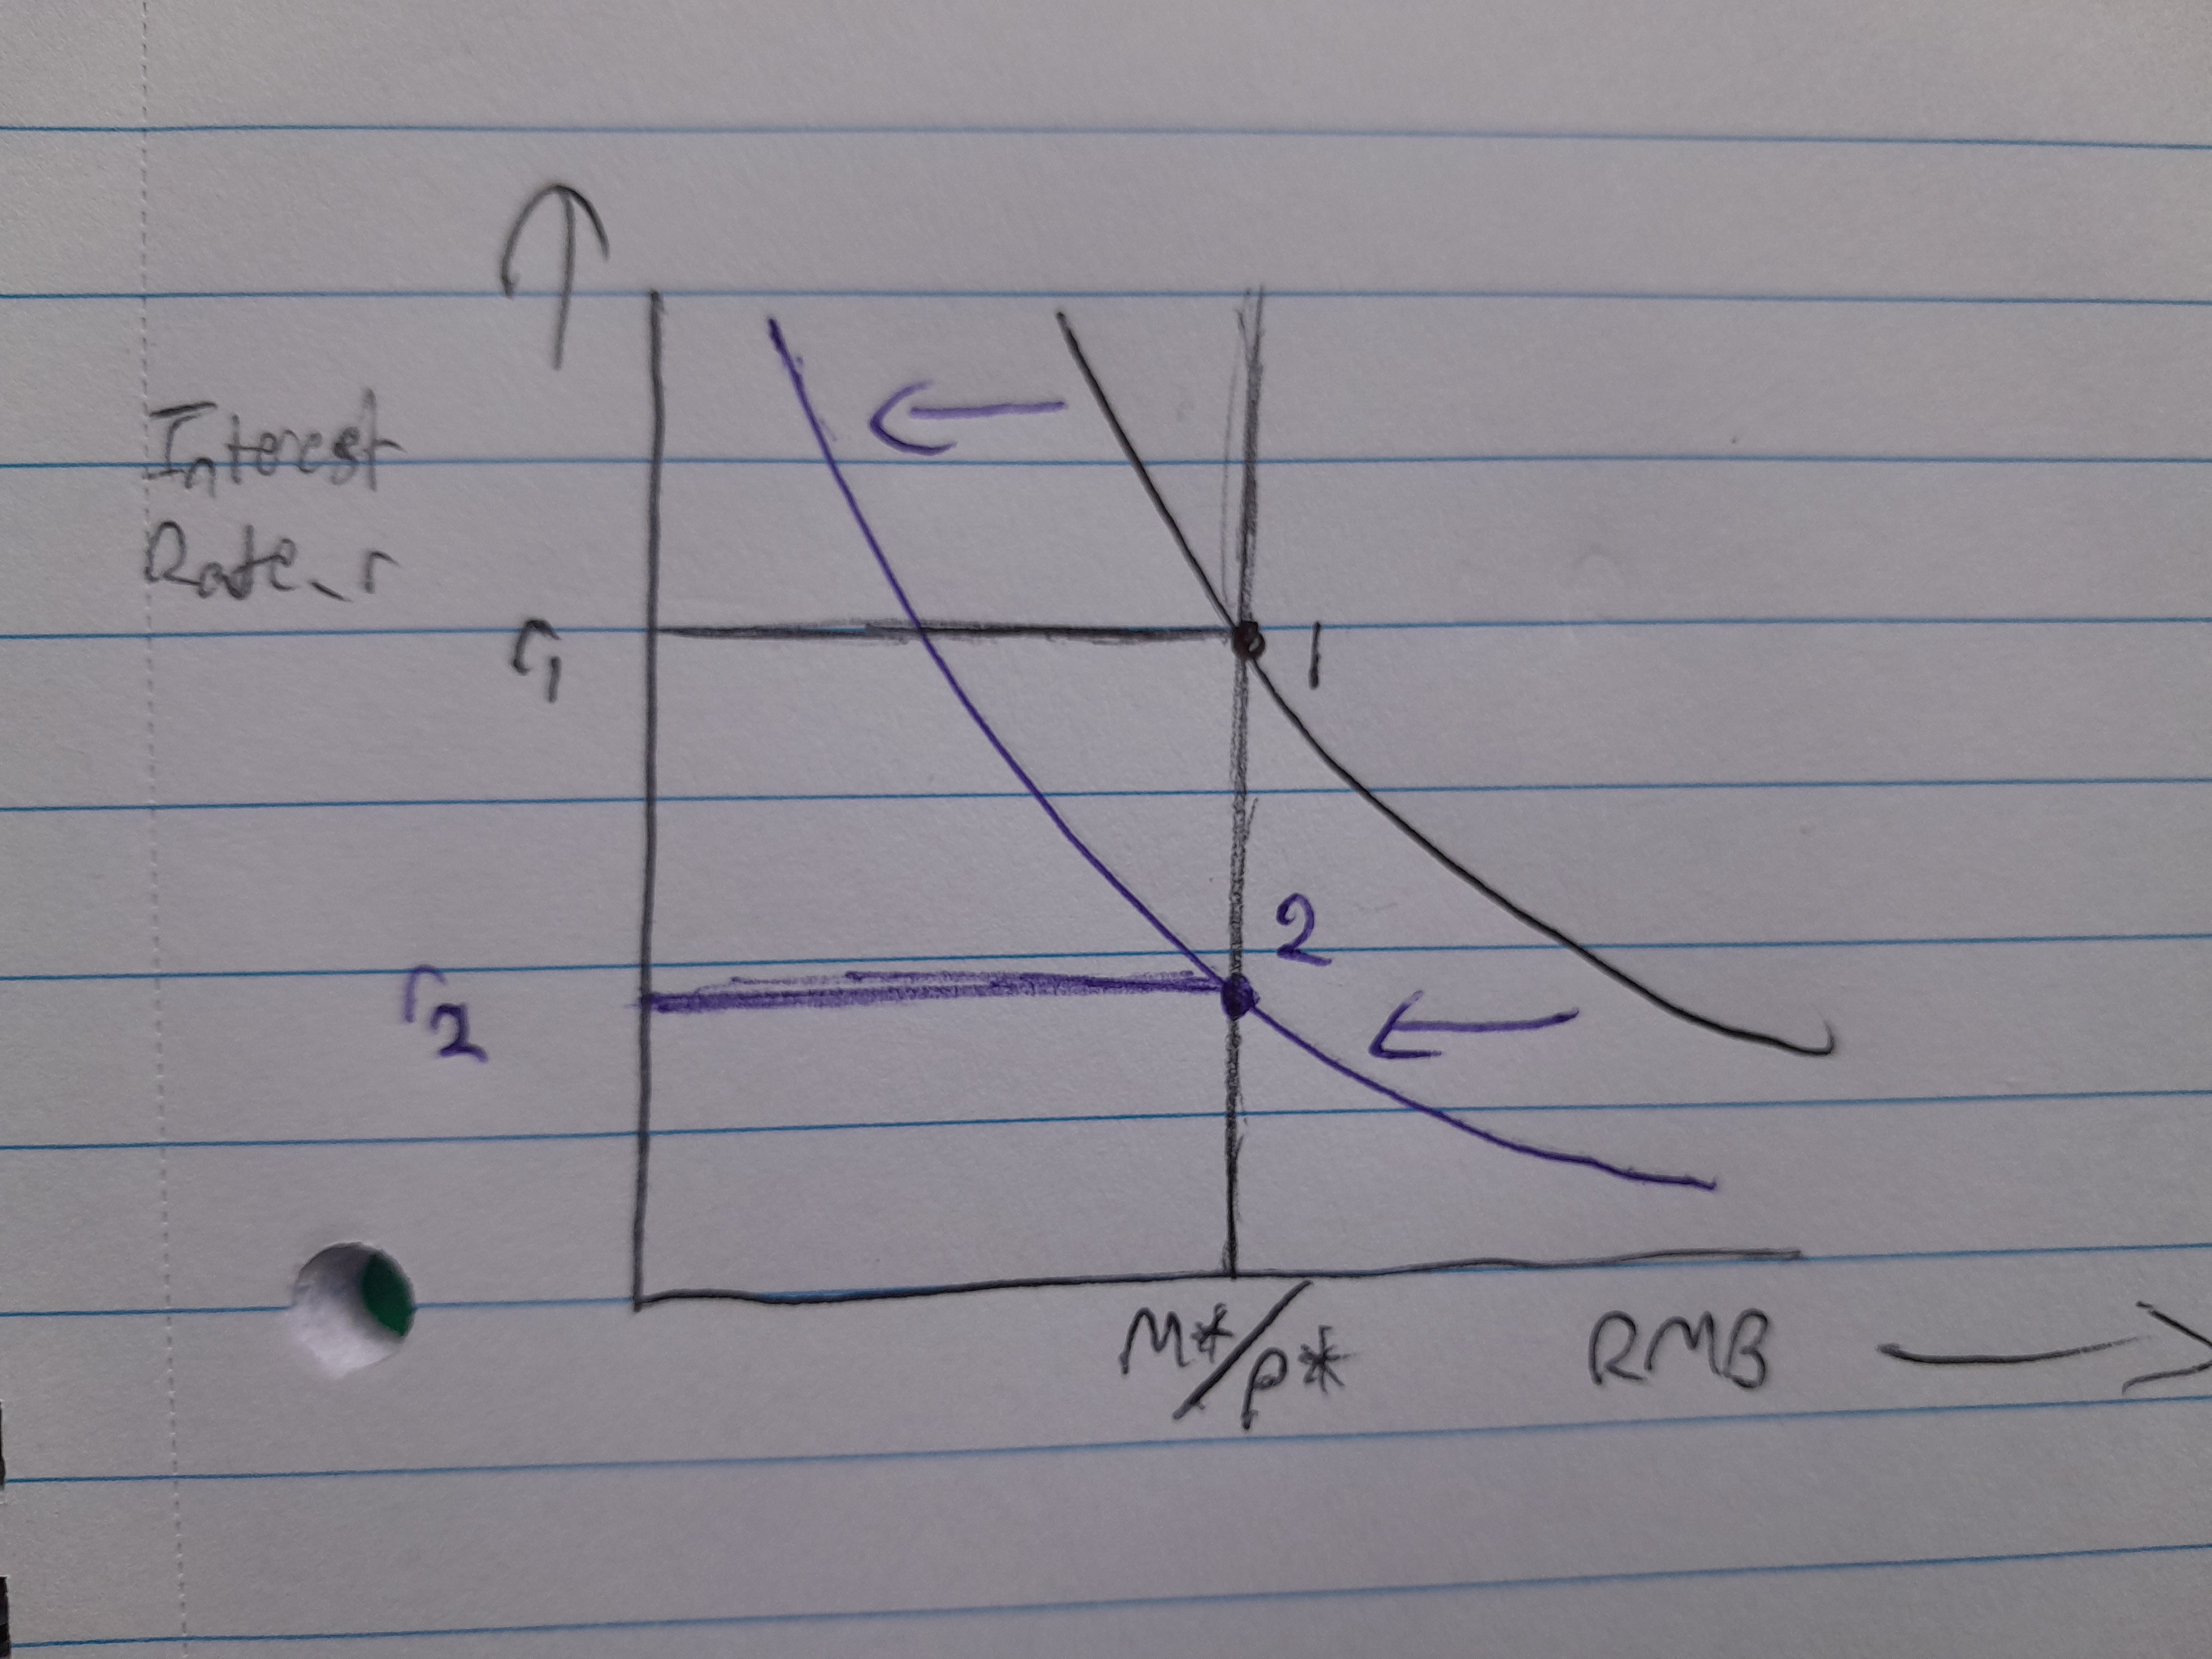 Interest
Rate, r
r1
1
r2
2
M*/P*
RMB